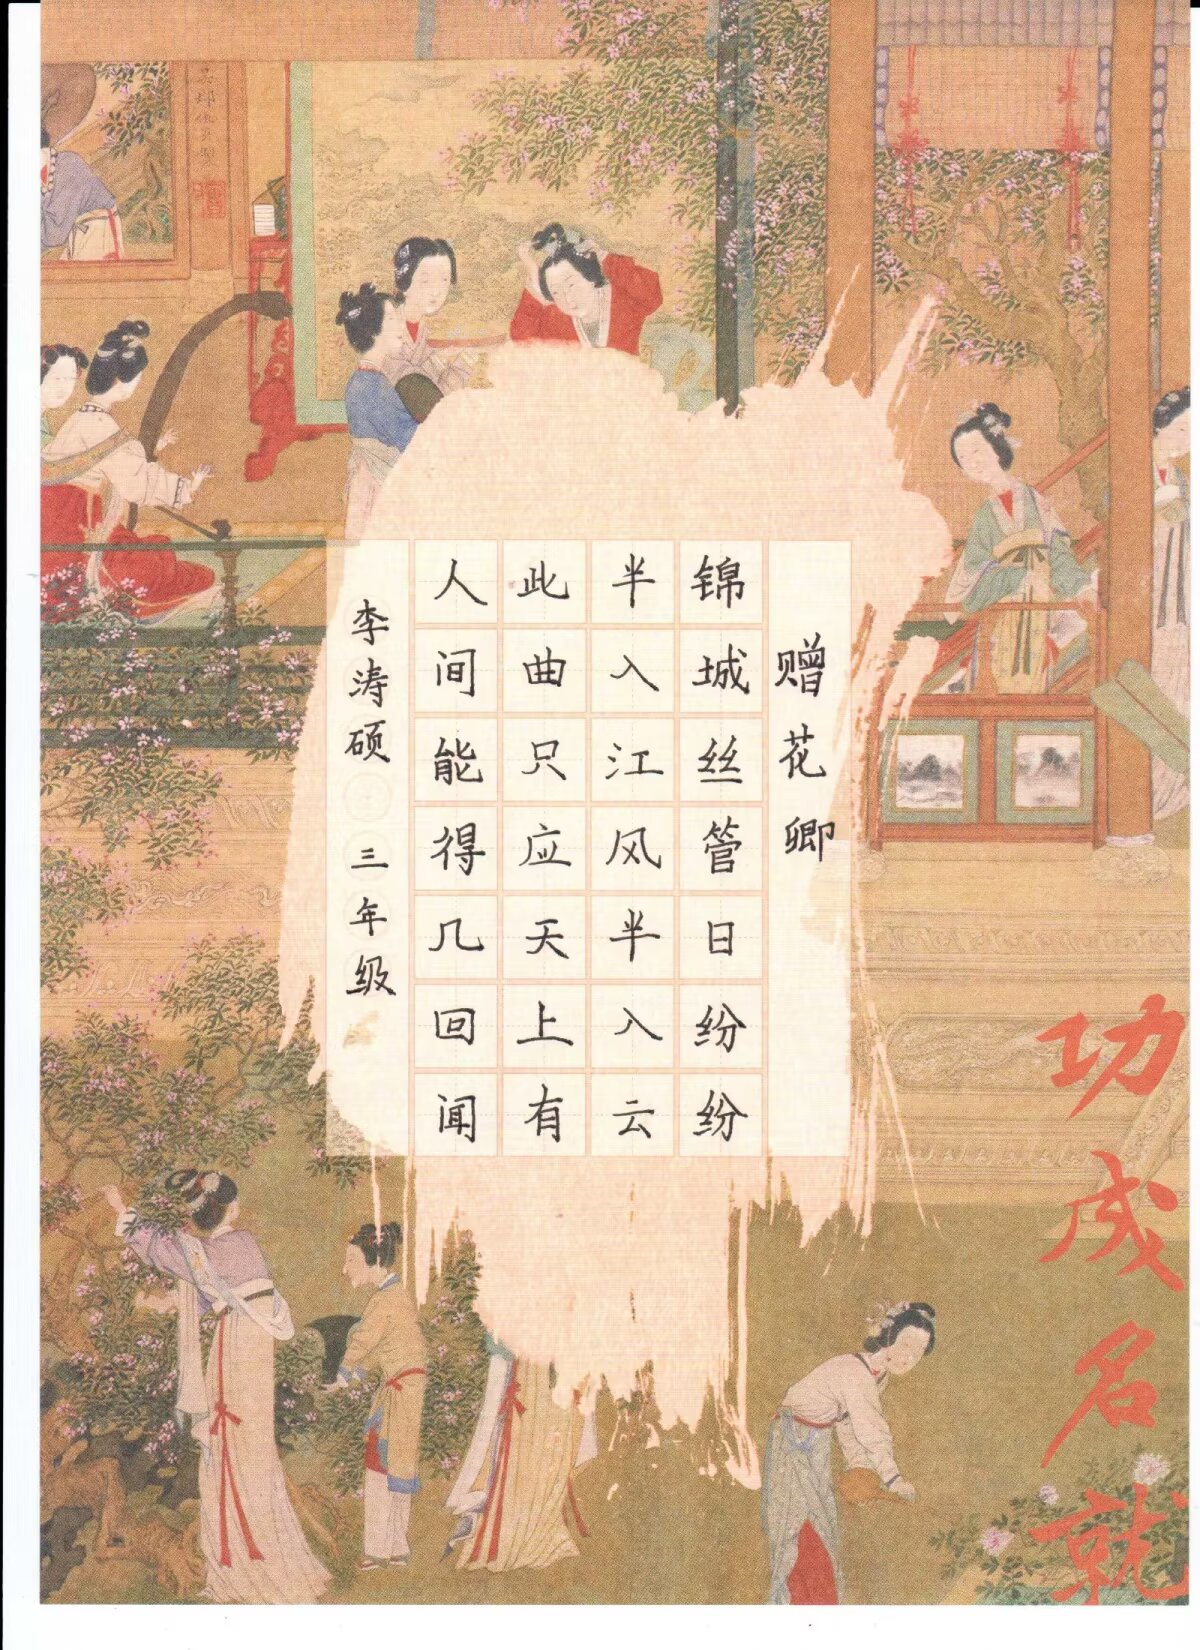 赠花卿
锦城丝管日纷纷
半入江风半入云
此曲只应天上有
人间能得几回闻
李涛硕 三年级
功成名就